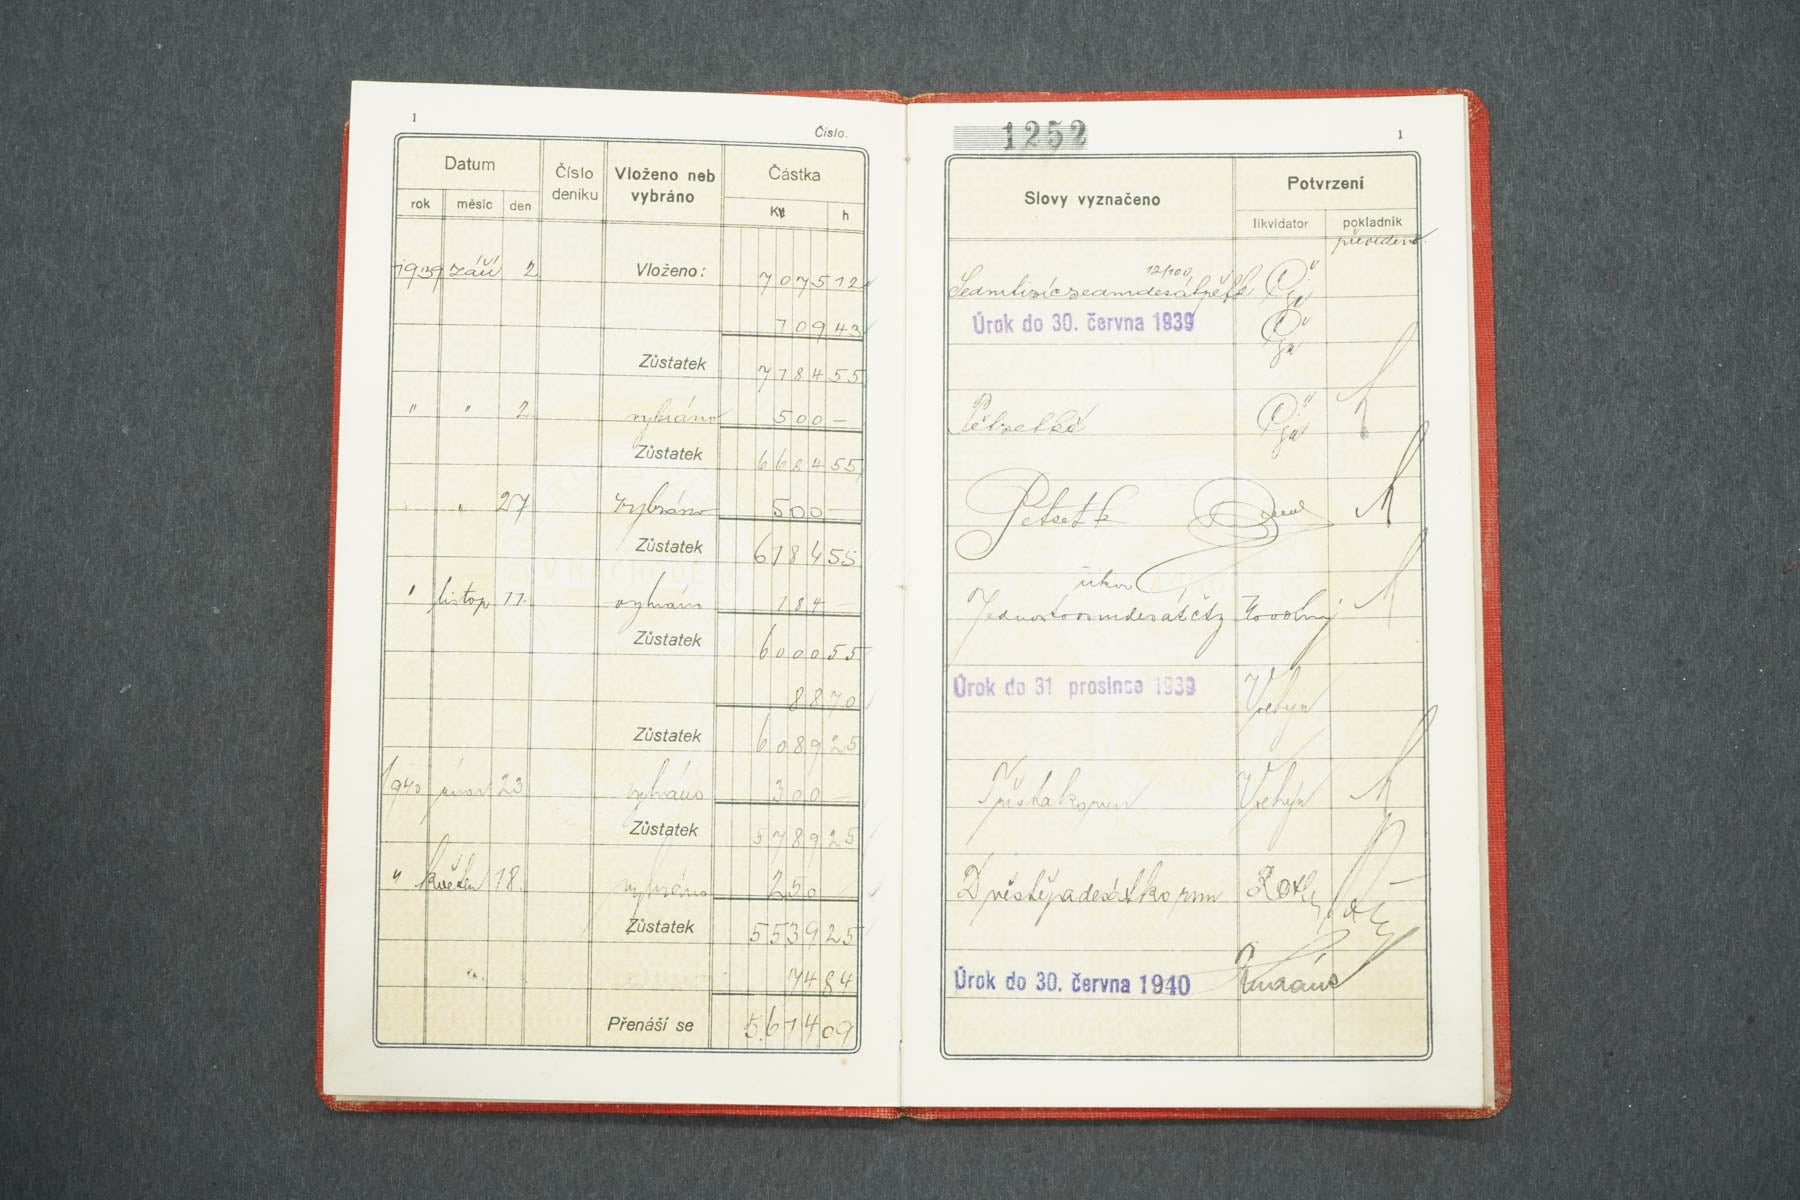 1
Číslo.
Datum
Číslo deníku
Vloženo neb vybráno
Částka
rok měsíc den
K h
1939 září 2 Vloženo: 7075 12
709 43
Zůstatek 7184 55
" " 2. vybráno 500 —
Zůstatek 6684 55
" 27 vybráno 500 —
Zůstatek 6184 55
" listop 11. vybráno 184 —
Zůstatek 6000 55
88 70
Zůstatek 6089 25
1940 únor 23 vybráno 300 —
Zůstatek 5789 25
" květen 18. vybráno 250 —
Zůstatek 5539 25
74 84
Přenáší se 5.614 09
V NÁCHODĚ
1252
1
Slovy vyznačeno
Potvrzení
likvidator pokladník
převedeno
12/100
Sedmtisícsedmdesátpět k
Úrok do 30. června 1939
Pětset kč
Pětset k
Jednostoosmdesátčtyř
Novotný
Úrok do 31 prosince 1939
Třista korun
Dvěstěpadesátkorun
Úrok do 30. června 1940